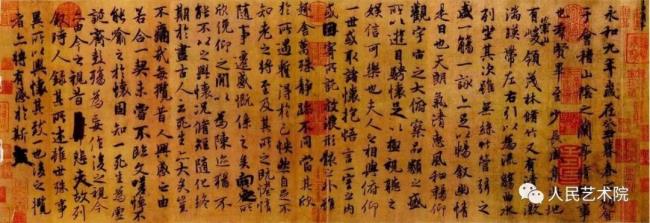 永和九年歲在癸丑暮春之初會
于會稽山陰之蘭亭脩稧事
也羣賢畢至少長咸集此地
有崇山峻領茂林脩竹又有清流激
湍暎帶左右引以為流觴曲水
列坐其次雖無絲竹管弦之
盛一觴一詠亦足以暢叙幽情
是日也天朗氣清惠風和暢仰
觀宇宙之大俯察品類之盛
所以遊目騁懷足以極視聽之
娛信可樂也夫人之相與俯仰
一世或取諸懷抱悟言一室之內
或因寄所託放浪形骸之外雖
趣舍萬殊靜躁不同當其欣
於所遇蹔得於己怏然自足不
知老之將至及其所之既惓情
隨事遷感慨係之矣向之所
欣俛仰之閒以為陳迹猶不
能不以之興懷況脩短隨化終
期於盡古人云死生亦大矣豈
不痛哉每攬昔人興感之由
若合一契未嘗不臨文嗟悼不
能喻之於懷固知一死生為虛
誕齊彭殤為妄作後之視今
亦由今之視昔悲夫故列
叙時人錄其所述雖世殊事
異所以興懷其致一也後之攬
者亦將有感於斯文
人民艺术院